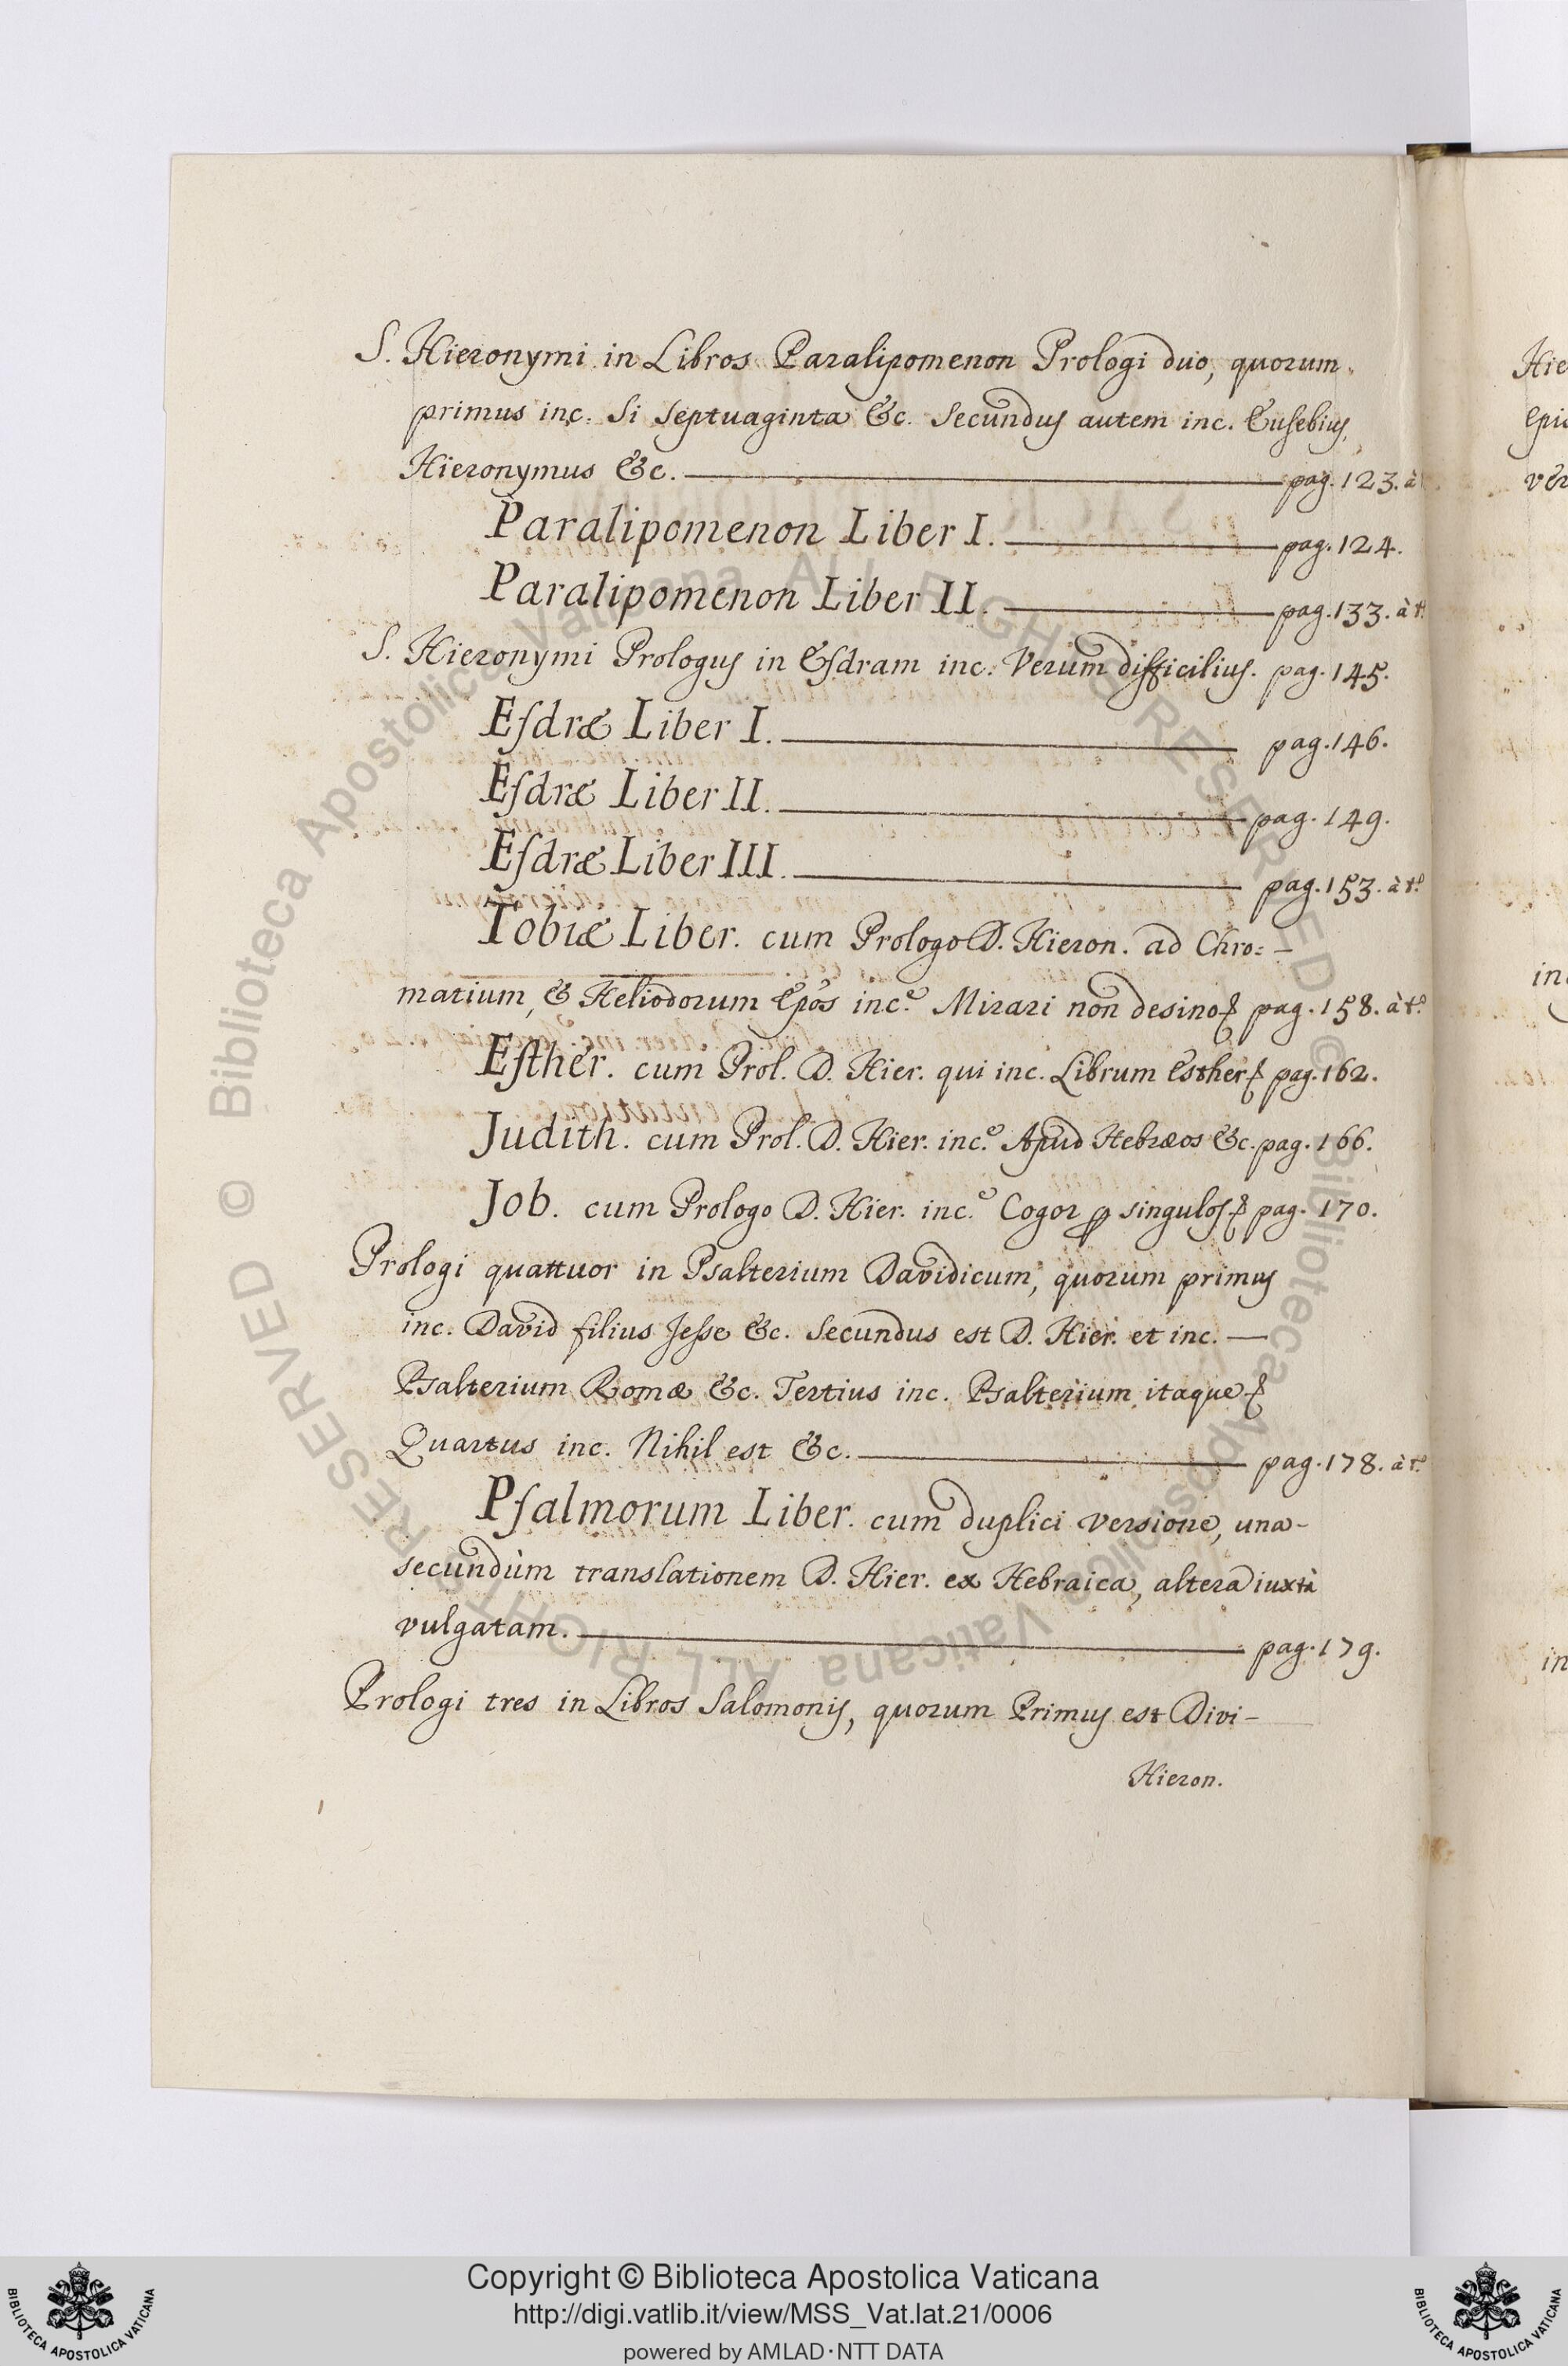 S. Hieronymi in Libros Paralipomenon Prologi duo, quorum
primus inc. Si septuaginta &c. Secundus autem inc. Eusebius,
Hieronymus &c. pag. 123. à
Paralipomenon Liber I. pag. 124.
Paralipomenon Liber II. pag. 133. à t.
S. Hieronymi Prologus in Esdram inc. Verum difficilius. pag. 145.
Eſdræ Liber I. pag. 146.
Eſdræ Liber II. pag. 149.
Eſdræ Liber III. pag. 153. à t.º
Tobiæ Liber. cum Prologo D. Hieron. ad Chro=
matium, & Heliodorum Epos inc.º Mirari non desino pag. 158. à t.º
Eſther. cum Prol. D. Hier. qui inc. Librum Esther pag. 162.
Judith. cum Prol. D. Hier. inc.º Apud Hebræos &c. pag. 166.
Job. cum Prologo D. Hier. inc.º Cogor ꝑ singulos pag. 170.
Prologi quattuor in Psalterium Davidicum, quorum primus
inc. David filius Jesse &c. Secundus est D. Hier. et inc. —
Psalterium Romæ &c. Tertius inc. Psalterium itaque
Quartus inc. Nihil est &c. pag. 178. à t.º
Pſalmorum Liber. cum duplici versione, una
secundùm translationem D. Hier. ex Hebraica, altera iuxtà
vulgatam. pag. 179.
Prologi tres in Libros Salomonis, quorum Primus est Divi-
Hieron.
Hie
Epi
ver
in
in
© Biblioteca Apostolica Vaticana ALL RIGHTS RESERVED
© Biblioteca Apostolica Vaticana ALL RIGHTS RESERVED
Copyright © Biblioteca Apostolica Vaticana
http://digi.vatlib.it/view/MSS_Vat.lat.21/0006
powered by AMLAD·NTT DATA
BIBLIOTECA APOSTOLICA VATICANA
BIBLIOTECA APOSTOLICA VATICANA